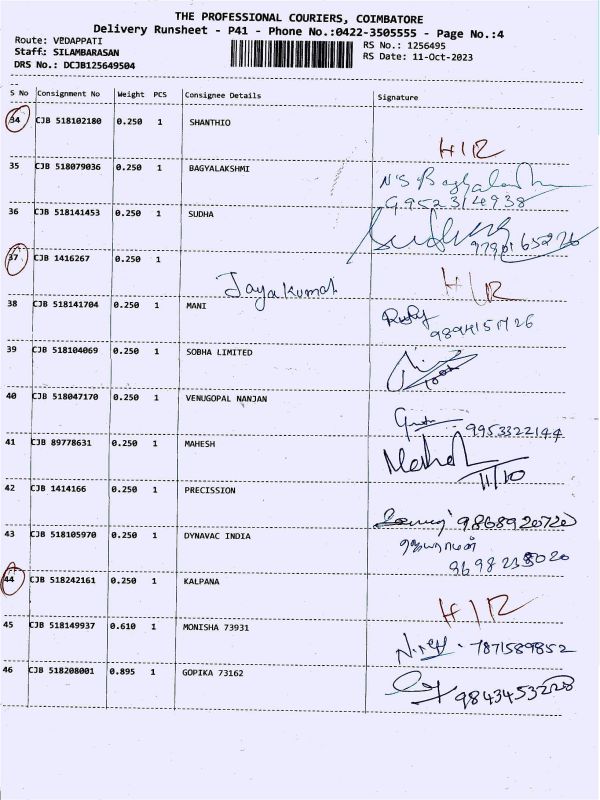 THE PROFESSIONAL COURIERS, COIMBATORE
Delivery Runsheet - P41 - Phone No.:0422-3505555 - Page No.:4
Route: VEDAPPATI RS No.: 1256495
Staff: SILAMBARASAN RS Date: 11-Oct-2023
DRS No.: DCJB125649504
S No Consignment No Weight PCS Consignee Details Signature
34 CJB 518102180 0.250 1 SHANTHIO
H/R
35 CJB 518079036 0.250 1 BAGYALAKSHMI
N'S
9952314938
36 CJB 518141453 0.250 1 SUDHA
9790165276
37 CJB 1416267 0.250 1
Jayakumar H/R
38 CJB 518141704 0.250 1 MANI
9894151726
39 CJB 518104069 0.250 1 SOBHA LIMITED
40 CJB 518047170 0.250 1 VENUGOPAL NANJAN
9953322144
41 CJB 89778631 0.250 1 MAHESH
Mahesh
11/10
42 CJB 1414166 0.250 1 PRECISSION
9868920720
43 CJB 518105970 0.250 1 DYNAVAC INDIA
ஜெயராமன்
9698238020
44 CJB 518242161 0.250 1 KALPANA
H/R
45 CJB 518149937 0.610 1 MONISHA 73931
7871589852
46 CJB 518208001 0.895 1 GOPIKA 73162
9843453228